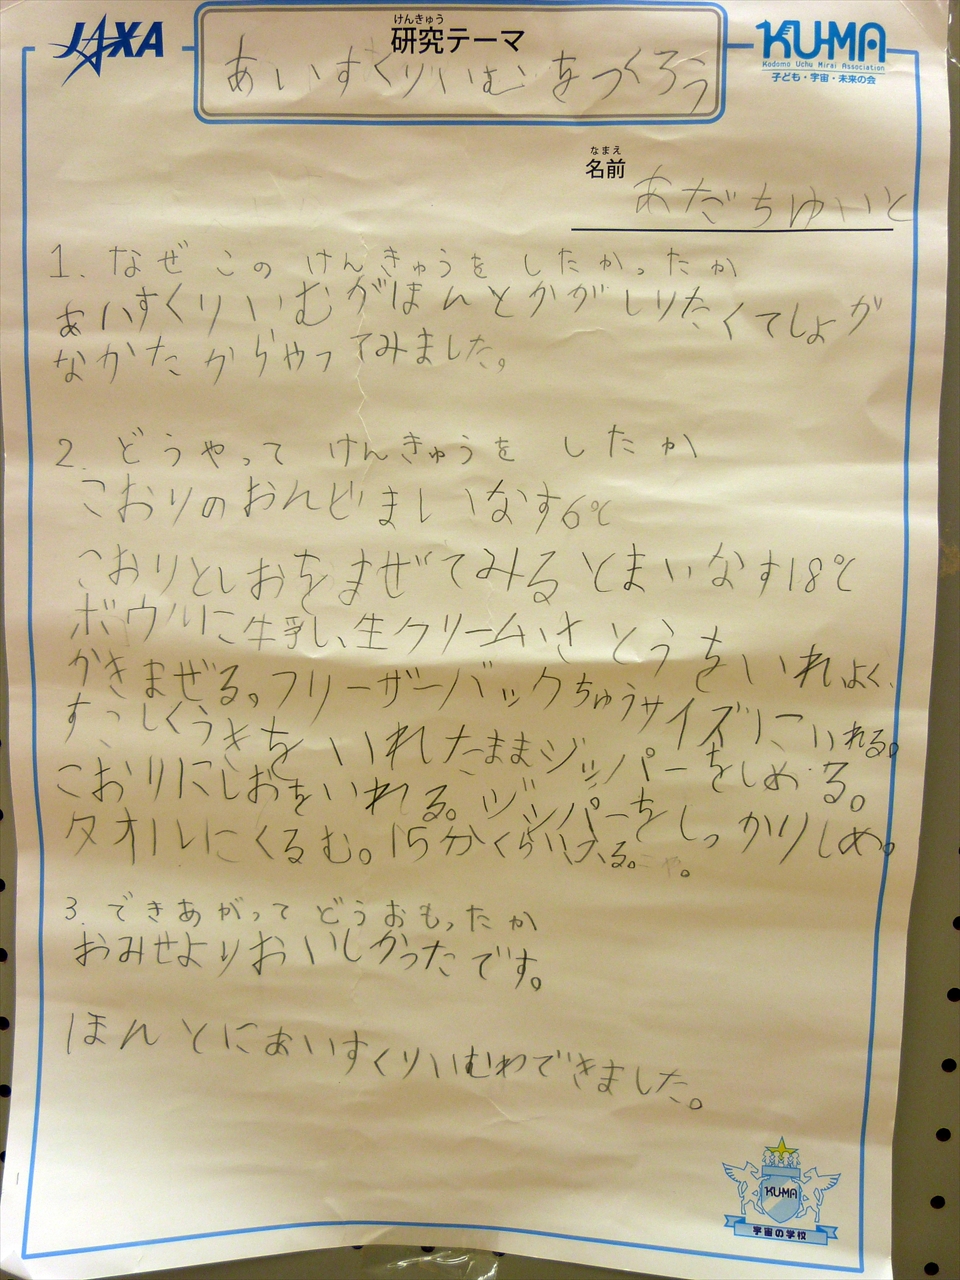 JAXA
けんきゅう
研究テーマ
KU-MA
Kodomo Uchu Mirai Association
子ども・宇宙・未来の会
あいすくりいむをつくろう
なまえ
名前
あだちゆいと
1. なぜ この けんきゅうを したかったか
あいすくりいむがほんとかがしりたくてしょが
なかたからやってみました。
2. どうやって けんきゅうを したか
こおりのおんどまいなす6℃
こおりとしおをまぜてみるとまいなす18℃
ボウルに牛乳、生クリームさとうをいれよく、
かきまぜる。フリーザーバックちゅうサイズにいれる。
すこしくうきをいれたままジッパーをしめる。
こおりにしおをいれる。ジッパーをしっかりしめ。
タオルにくるむ。15分くらいける。
3. できあがって どうおもったか
おみせよりおいしかったです。
ほんとにあいすくりいむわできました。
KU-MA
宇宙の学校